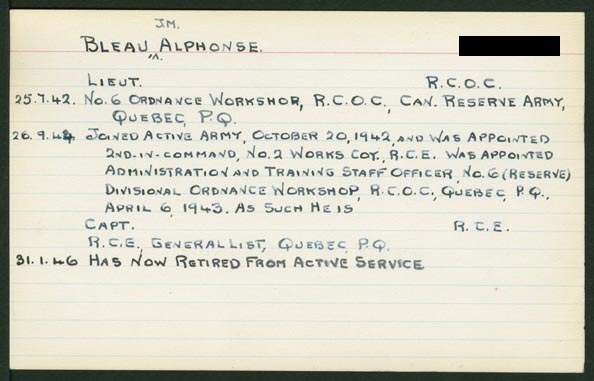 J.M.
BLEAU ^ ALPHONSE.
LIEUT. R.C.O.C.
25.7.42. No. 6 ORDNANCE WORKSHOP, R.C.O.C., CAN. RESERVE ARMY,
QUEBEC, P.Q.
26.9.44 JOINED ACTIVE ARMY, OCTOBER 20, 1942, AND WAS APPOINTED
2ND-IN-COMMAND, No. 2 WORKS COY., R.C.E. WAS APPOINTED
ADMINISTRATION AND TRAINING STAFF OFFICER, No. 6 (RESERVE)
DIVISIONAL ORDNANCE WORKSHOP, R.C.O.C., QUEBEC, P.Q.,
APRIL 6, 1943. AS SUCH HE IS
CAPT. R.C.E.
R.C.E., GENERAL LIST, QUEBEC, P.Q.
31.1.46 HAS NOW RETIRED FROM ACTIVE SERVICE